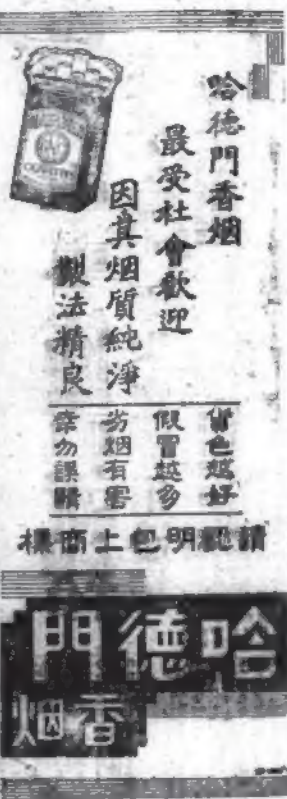 哈德門香烟
最受社會歡迎
因其烟質純淨
製法精良
貨色越好
假冒越多
劣烟有害
幸勿誤購
請認明包上商標
哈德門
香烟